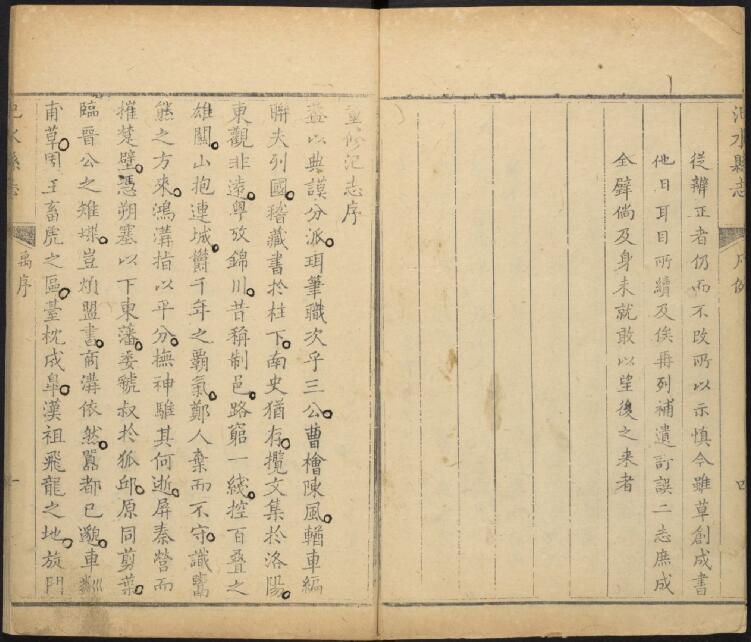 汜水縣志
凡例
四
從辨正者仍而不改所以示慎今雖草創成書
他日耳目所續及俟再列補遺訂誤二志庶成
全璧倘及身未就敢以望後之來者
重修汜志序
蓋以典謨分派珥筆職次乎三公曹檜陳風輶車編
聯夫列國稽藏書於柱下南史猶存攬文集於洛陽
東觀非遠粵攷錦川昔稱制邑路窮一綫控百疊之
雄關山抱連城欝千年之霸氣鄭人棄而不守讖鸑
熊之方來鴻溝指以平分撫神騅其何逝屏秦營而
摧楚壁憑朔塞以下東藩委虢叔於狐邱原同剪葉
臨晉公之雉堞豈煩盟書商溝依然囂都已邈車
甫草周王畜虎之區臺枕成皐漢祖飛龍之地旋門
汜水縣志
禹序
一